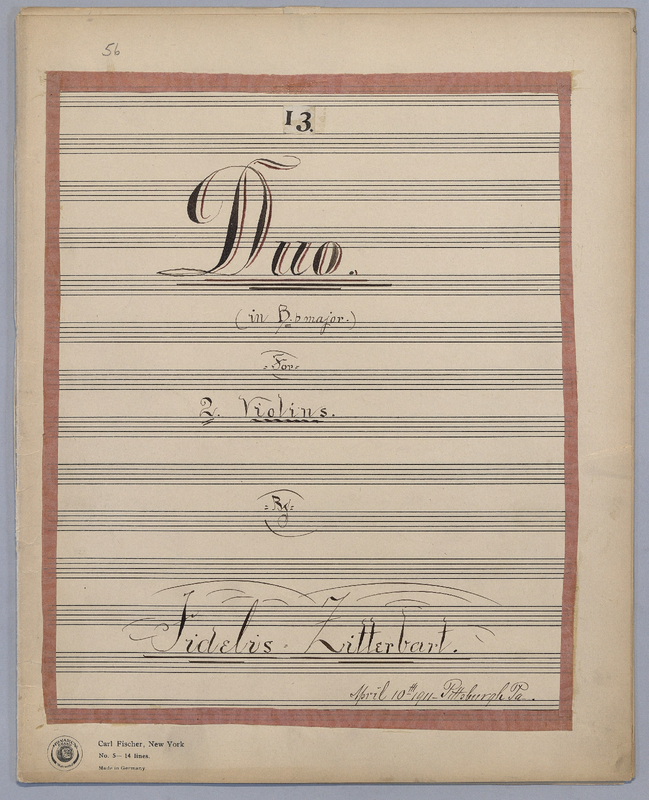 56
13.
Duo.
(in B♭ major.)
=For=
2. Violins.
=By=
Fidelis - Zitterbart.
April 10th 1911 - Pittsburgh Pa.
Carl Fischer, New York
No. 5— 14 lines.
Made in Germany